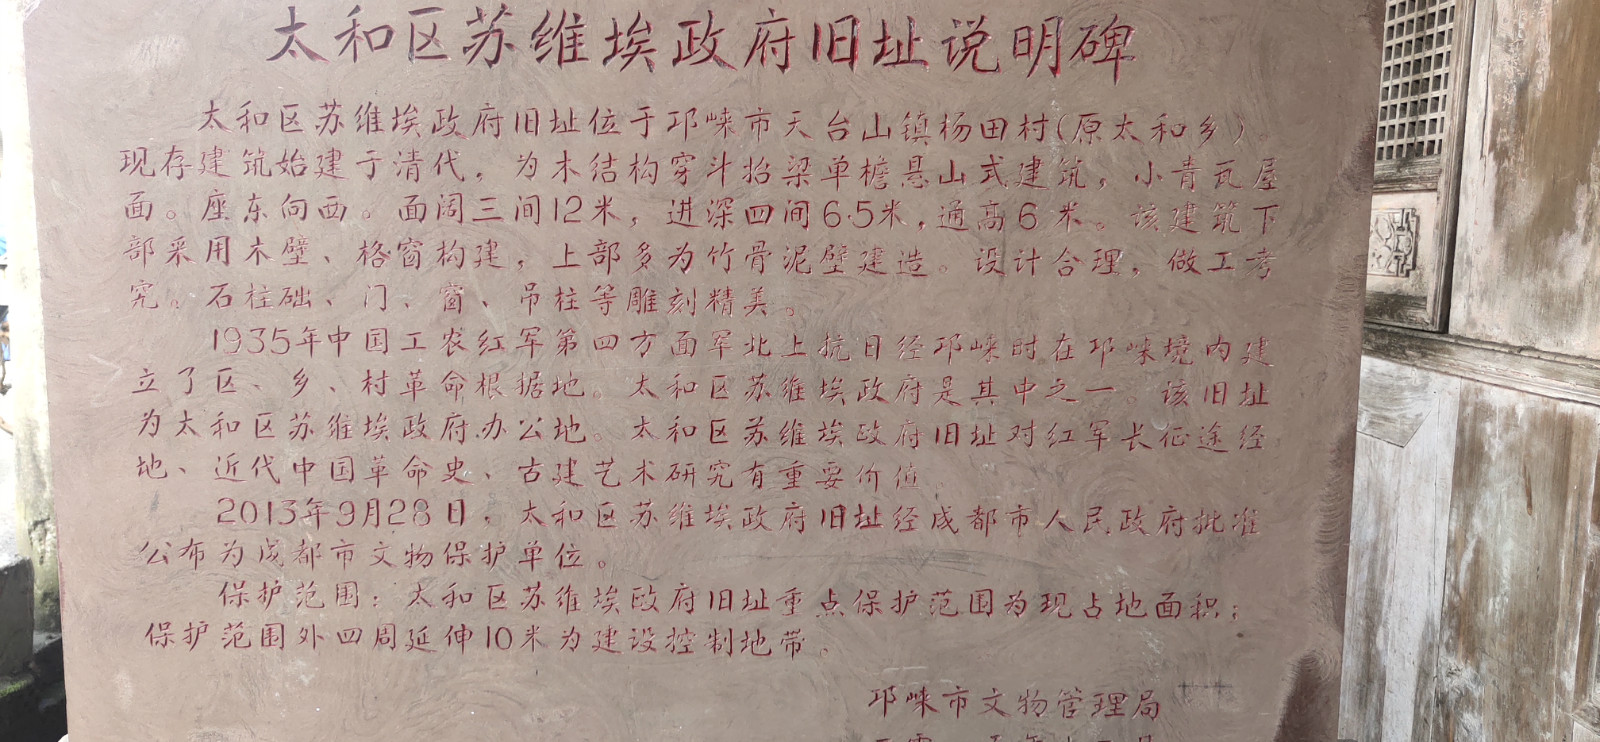 太和区苏维埃政府旧址说明碑
太和区苏维埃政府旧址位于邛崃市天台山镇杨田村(原太和乡)
现存建筑始建于清代，为木结构穿斗抬梁单檐悬山式建筑，小青瓦屋
面。座东向西。面阔三间12米，进深四间6.5米，通高6米。该建筑下
部采用木壁、格窗构建，上部多为竹骨泥壁建造。设计合理，做工考
究。石柱础、门、窗、吊柱等雕刻精美。
1935年中国工农红军第四方面军北上抗日经邛崃时在邛崃境内建
立了区、乡、村革命根据地。太和区苏维埃政府是其中之一。该旧址
为太和区苏维埃政府办公地。太和区苏维埃政府旧址对红军长征途经
地、近代中国革命史、古建艺术研究有重要价值。
2013年9月28日，太和区苏维埃政府旧址经成都市人民政府批准
公布为成都市文物保护单位。
保护范围：太和区苏维埃政府旧址重点保护范围为现占地面积；
保护范围外四周延伸10米为建设控制地带。
邛崃市文物管理局